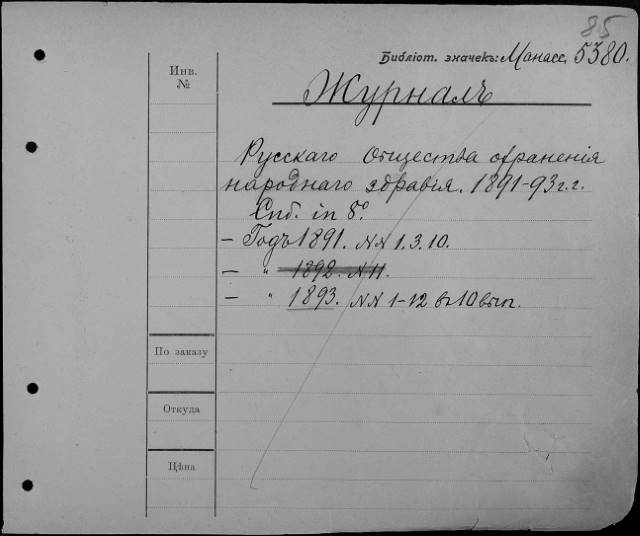 85
Библіот. значекъ: Манасс. 5380.
Инв.
№
Журналъ
Русскаго Общества охраненія
народнаго здравія. 1891-93 г.г.
Спб. in 8º
— Годъ 1891. №№ 1.3.10.
— " 1892. № 11.
— " 1893. №№ 1-12 въ 10 вып.
По заказу
Откуда
Цѣна